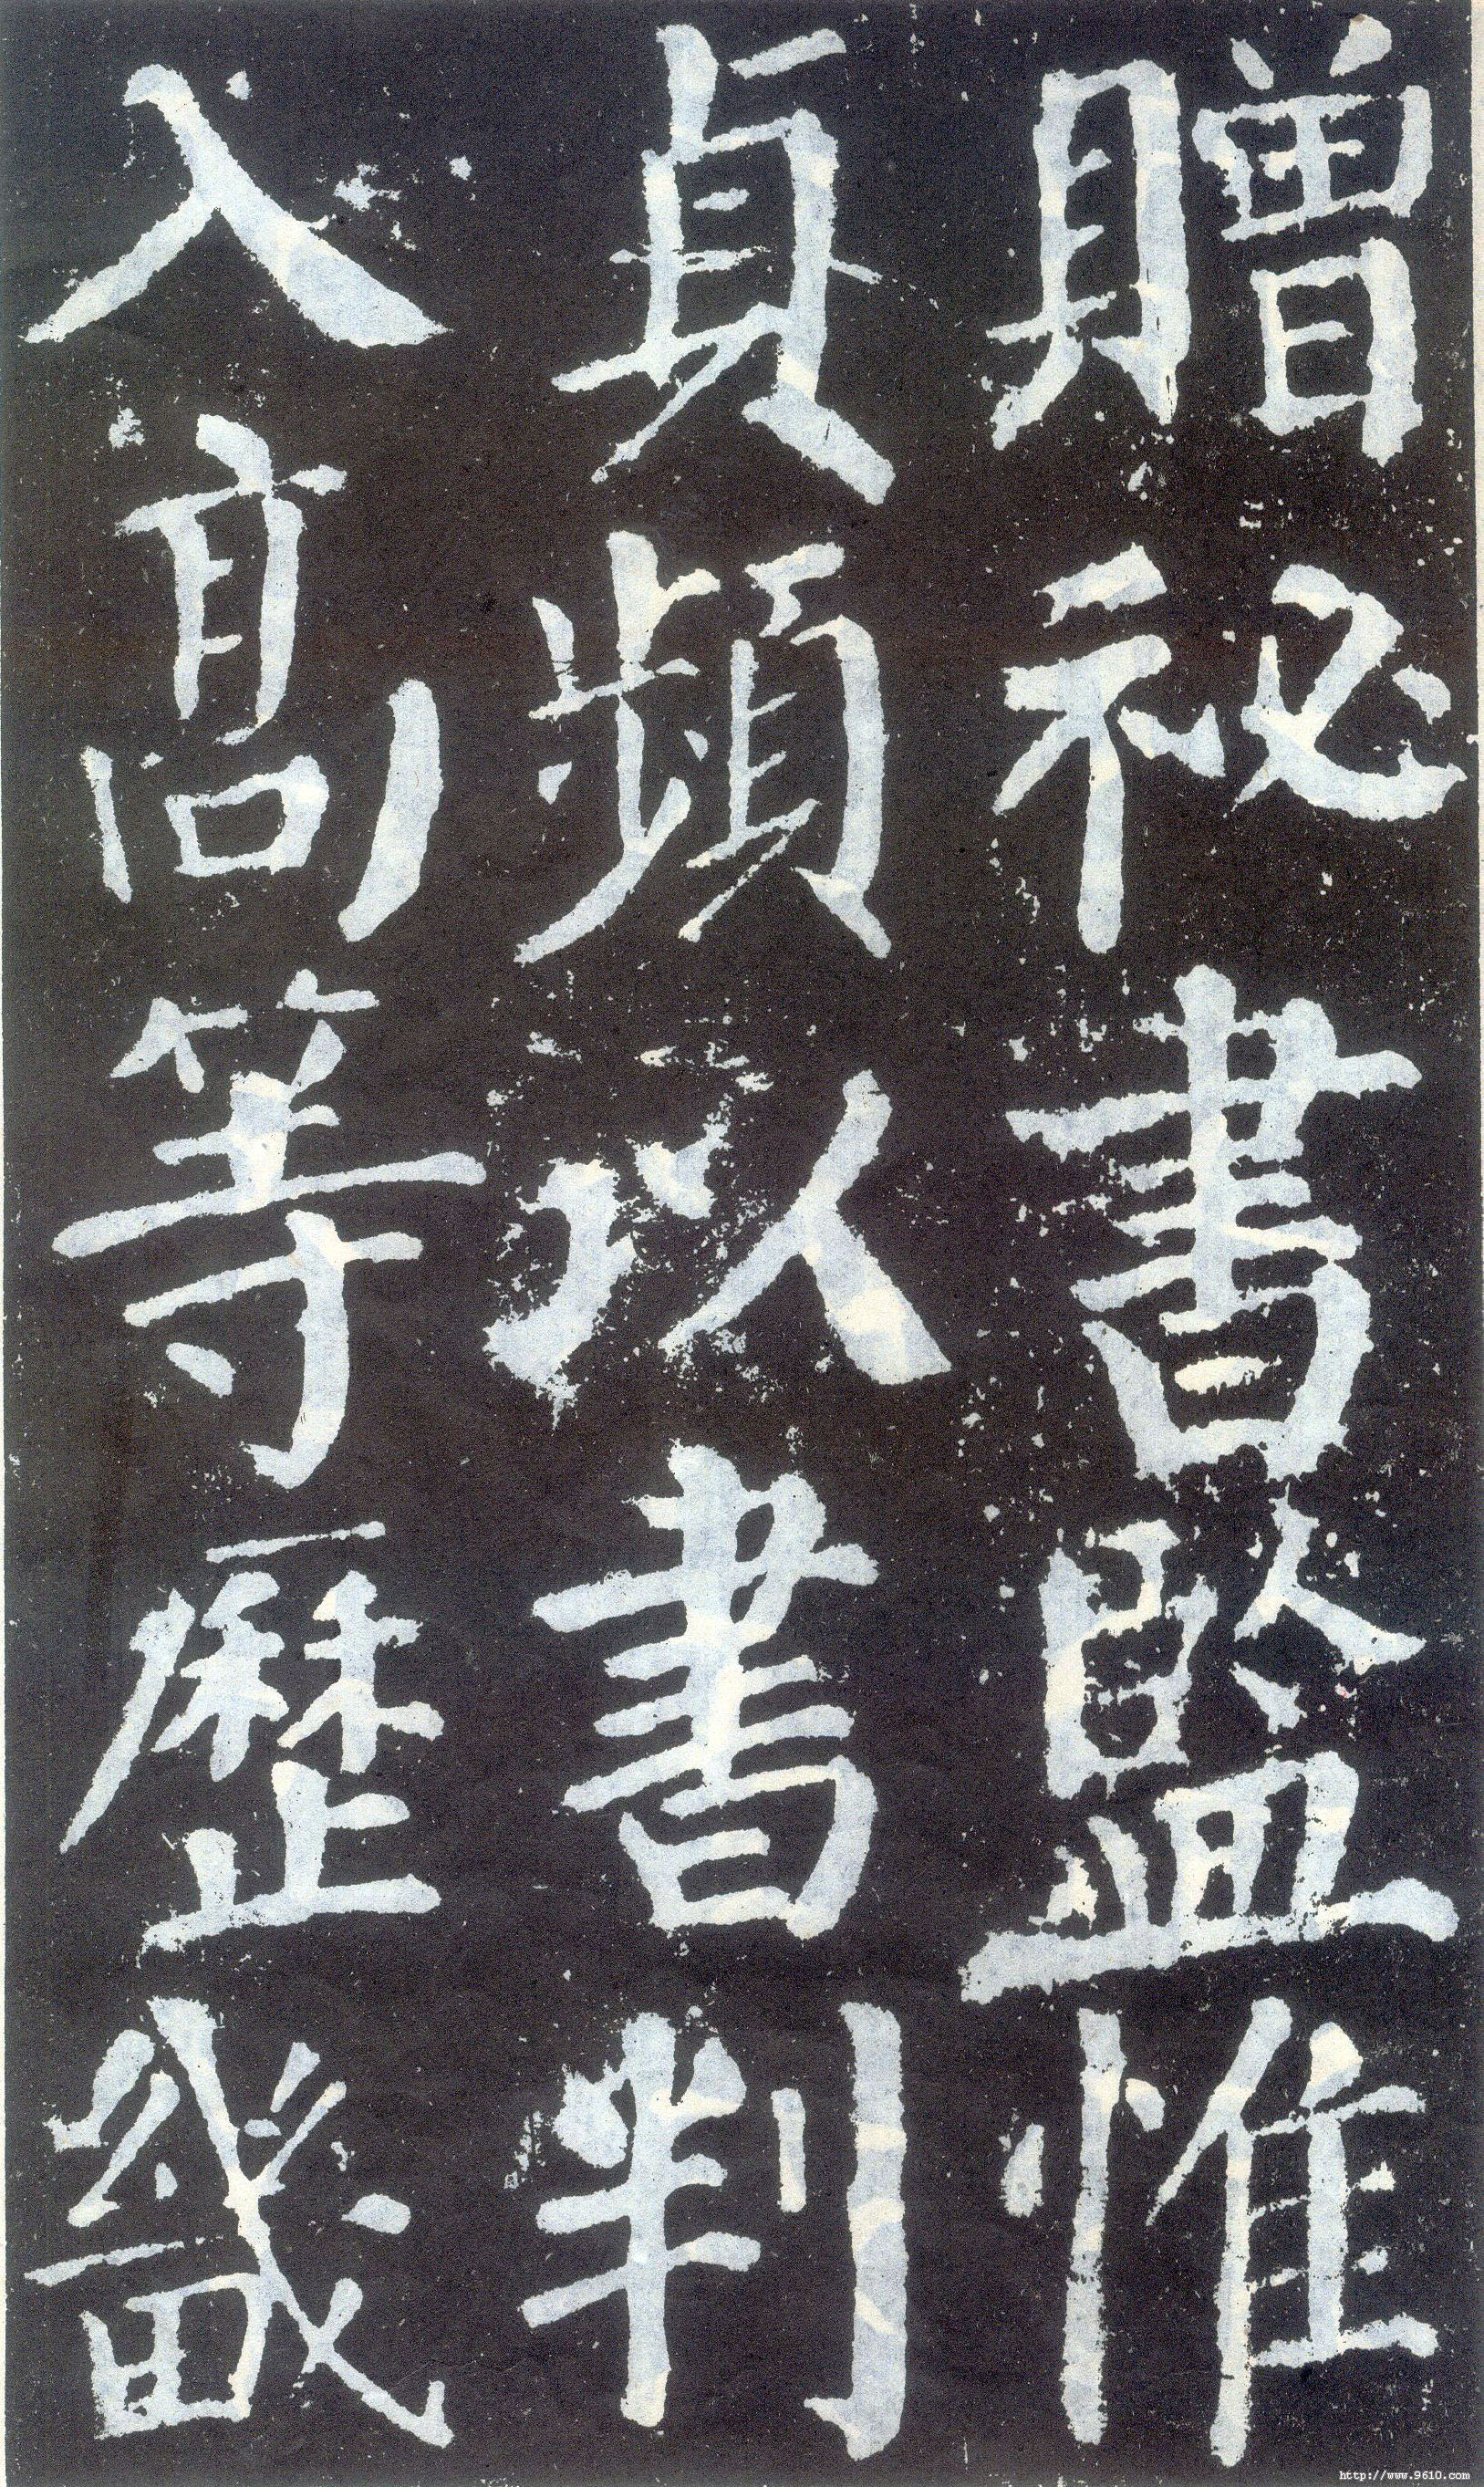 贈祕書監惟
貞頻以書判
入高等歷畿
http://www.9610.com